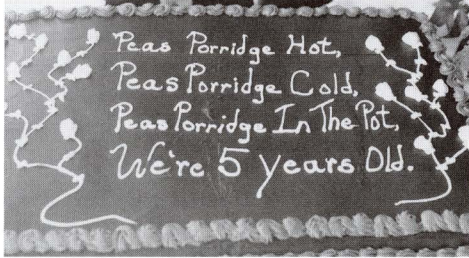 Peas Porridge Hot,
Peas Porridge Cold,
Peas Porridge In The Pot,
We're 5 years Old.